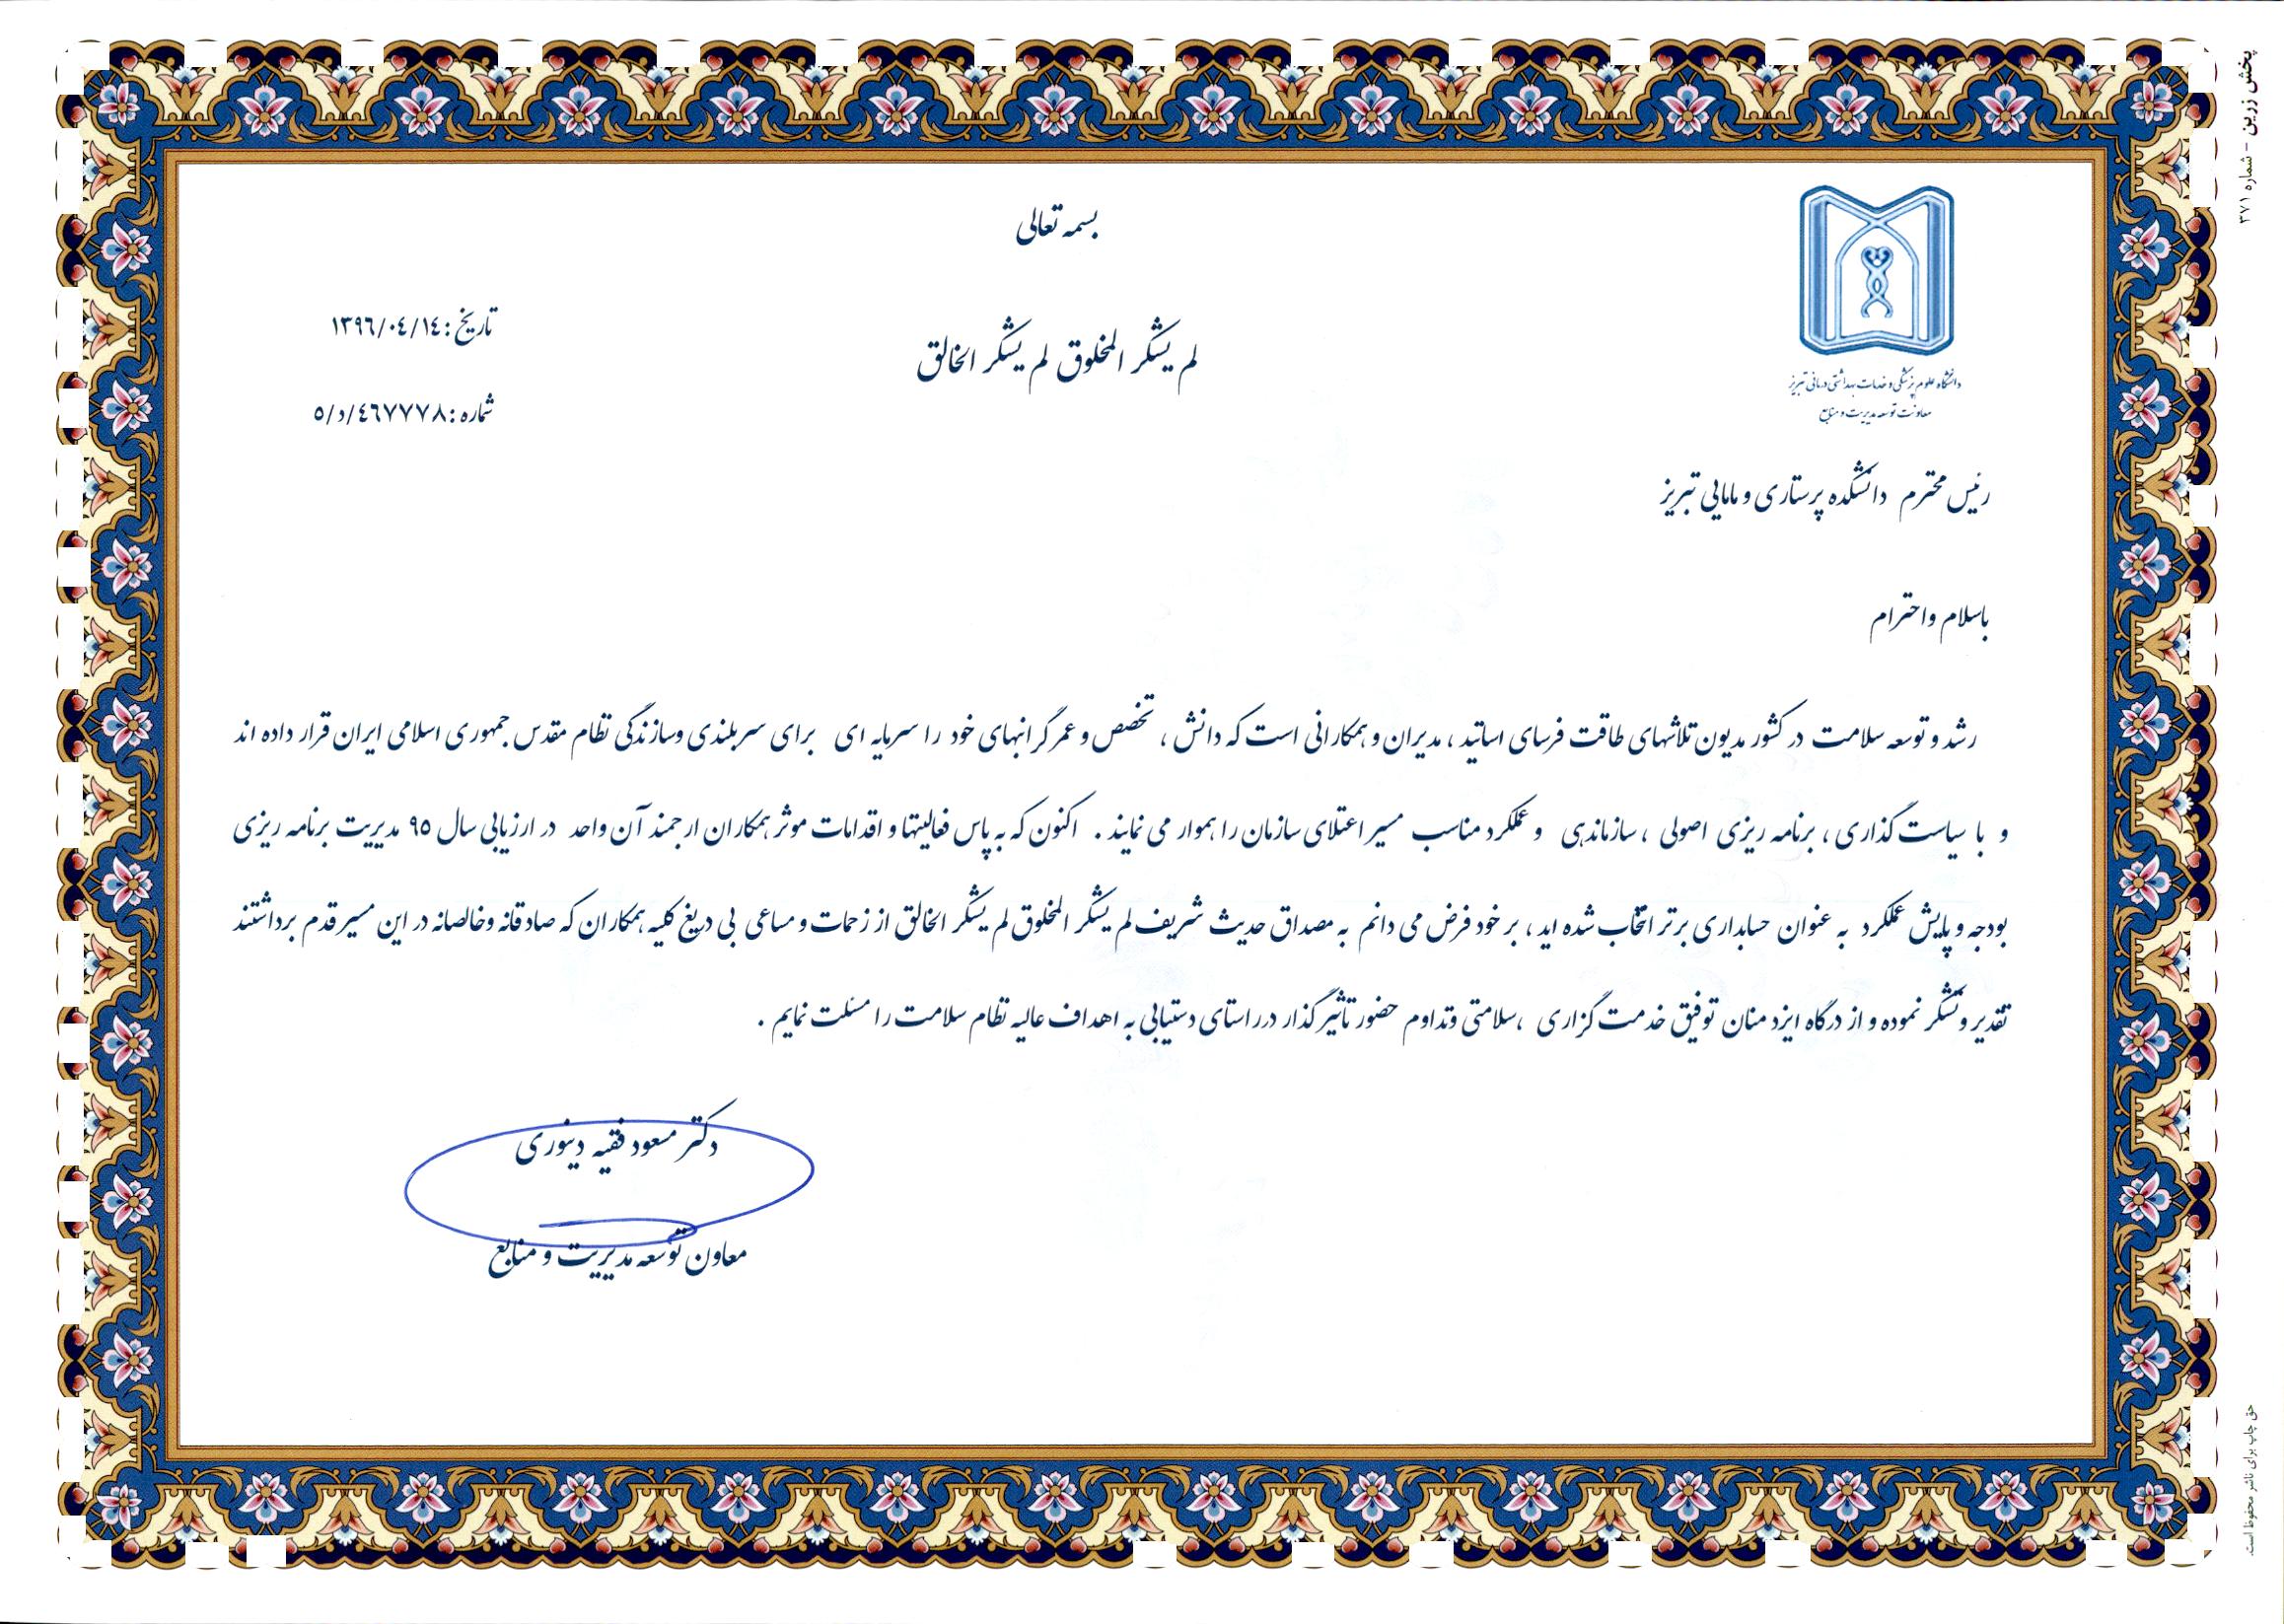 بسمه تعالی
لم یشکر المخلوق لم یشکر الخالق
تاریخ : ١٣٩٦/٠٤/١٤
شماره : ٥/د/٤٦٧٧٧٨
دانشگاه علوم پزشکی و خدمات بهداشتی درمانی تبریز
معاونت توسعه مدیریت و منابع
رئیس محترم دانشکده پرستاری و مامایی تبریز
باسلام واحترام
رشد و توسعه سلامت در کشور مدیون تلاشهای طاقت فرسای اساتید ، مدیران و همکارانی است که دانش ، تخصص و عمر گرانبهای خود را سرمایه ای برای سربلندی وسازندگی نظام مقدس جمهوری اسلامی ایران قرار داده اند
و با سیاست گذاری ، برنامه ریزی اصولی ، سازماندهی و عملکرد مناسب مسیر اعتلای سازمان را هموار می نمایند . اکنون که به پاس فعالیتها و اقدامات موثر همکاران ارجمند آن واحد در ارزیابی سال ٩٥ مدیریت برنامه ریزی
بودجه و پایش عملکرد به عنوان حسابداری برتر انتخاب شده اید ، بر خود فرض می دانم به مصداق حدیث شریف لم یشکر المخلوق لم یشکر الخالق از زحمات و مساعی بی دریغ کلیه همکاران که صادقانه وخالصانه در این مسیر قدم برداشتند
تقدیر وتشکر نموده و از درگاه ایزد منان توفیق خدمت گزاری ،سلامتی وتداوم حضور تأثیر گذار درراستای دستیابی به اهداف عالیه نظام سلامت را مسئلت نمایم .
دکتر مسعود فقیه دینوری
معاون توسعه مدیریت و منابع
پخش زرین - شماره ۳۷۱
حق چاپ برای ناشر محفوظ است.